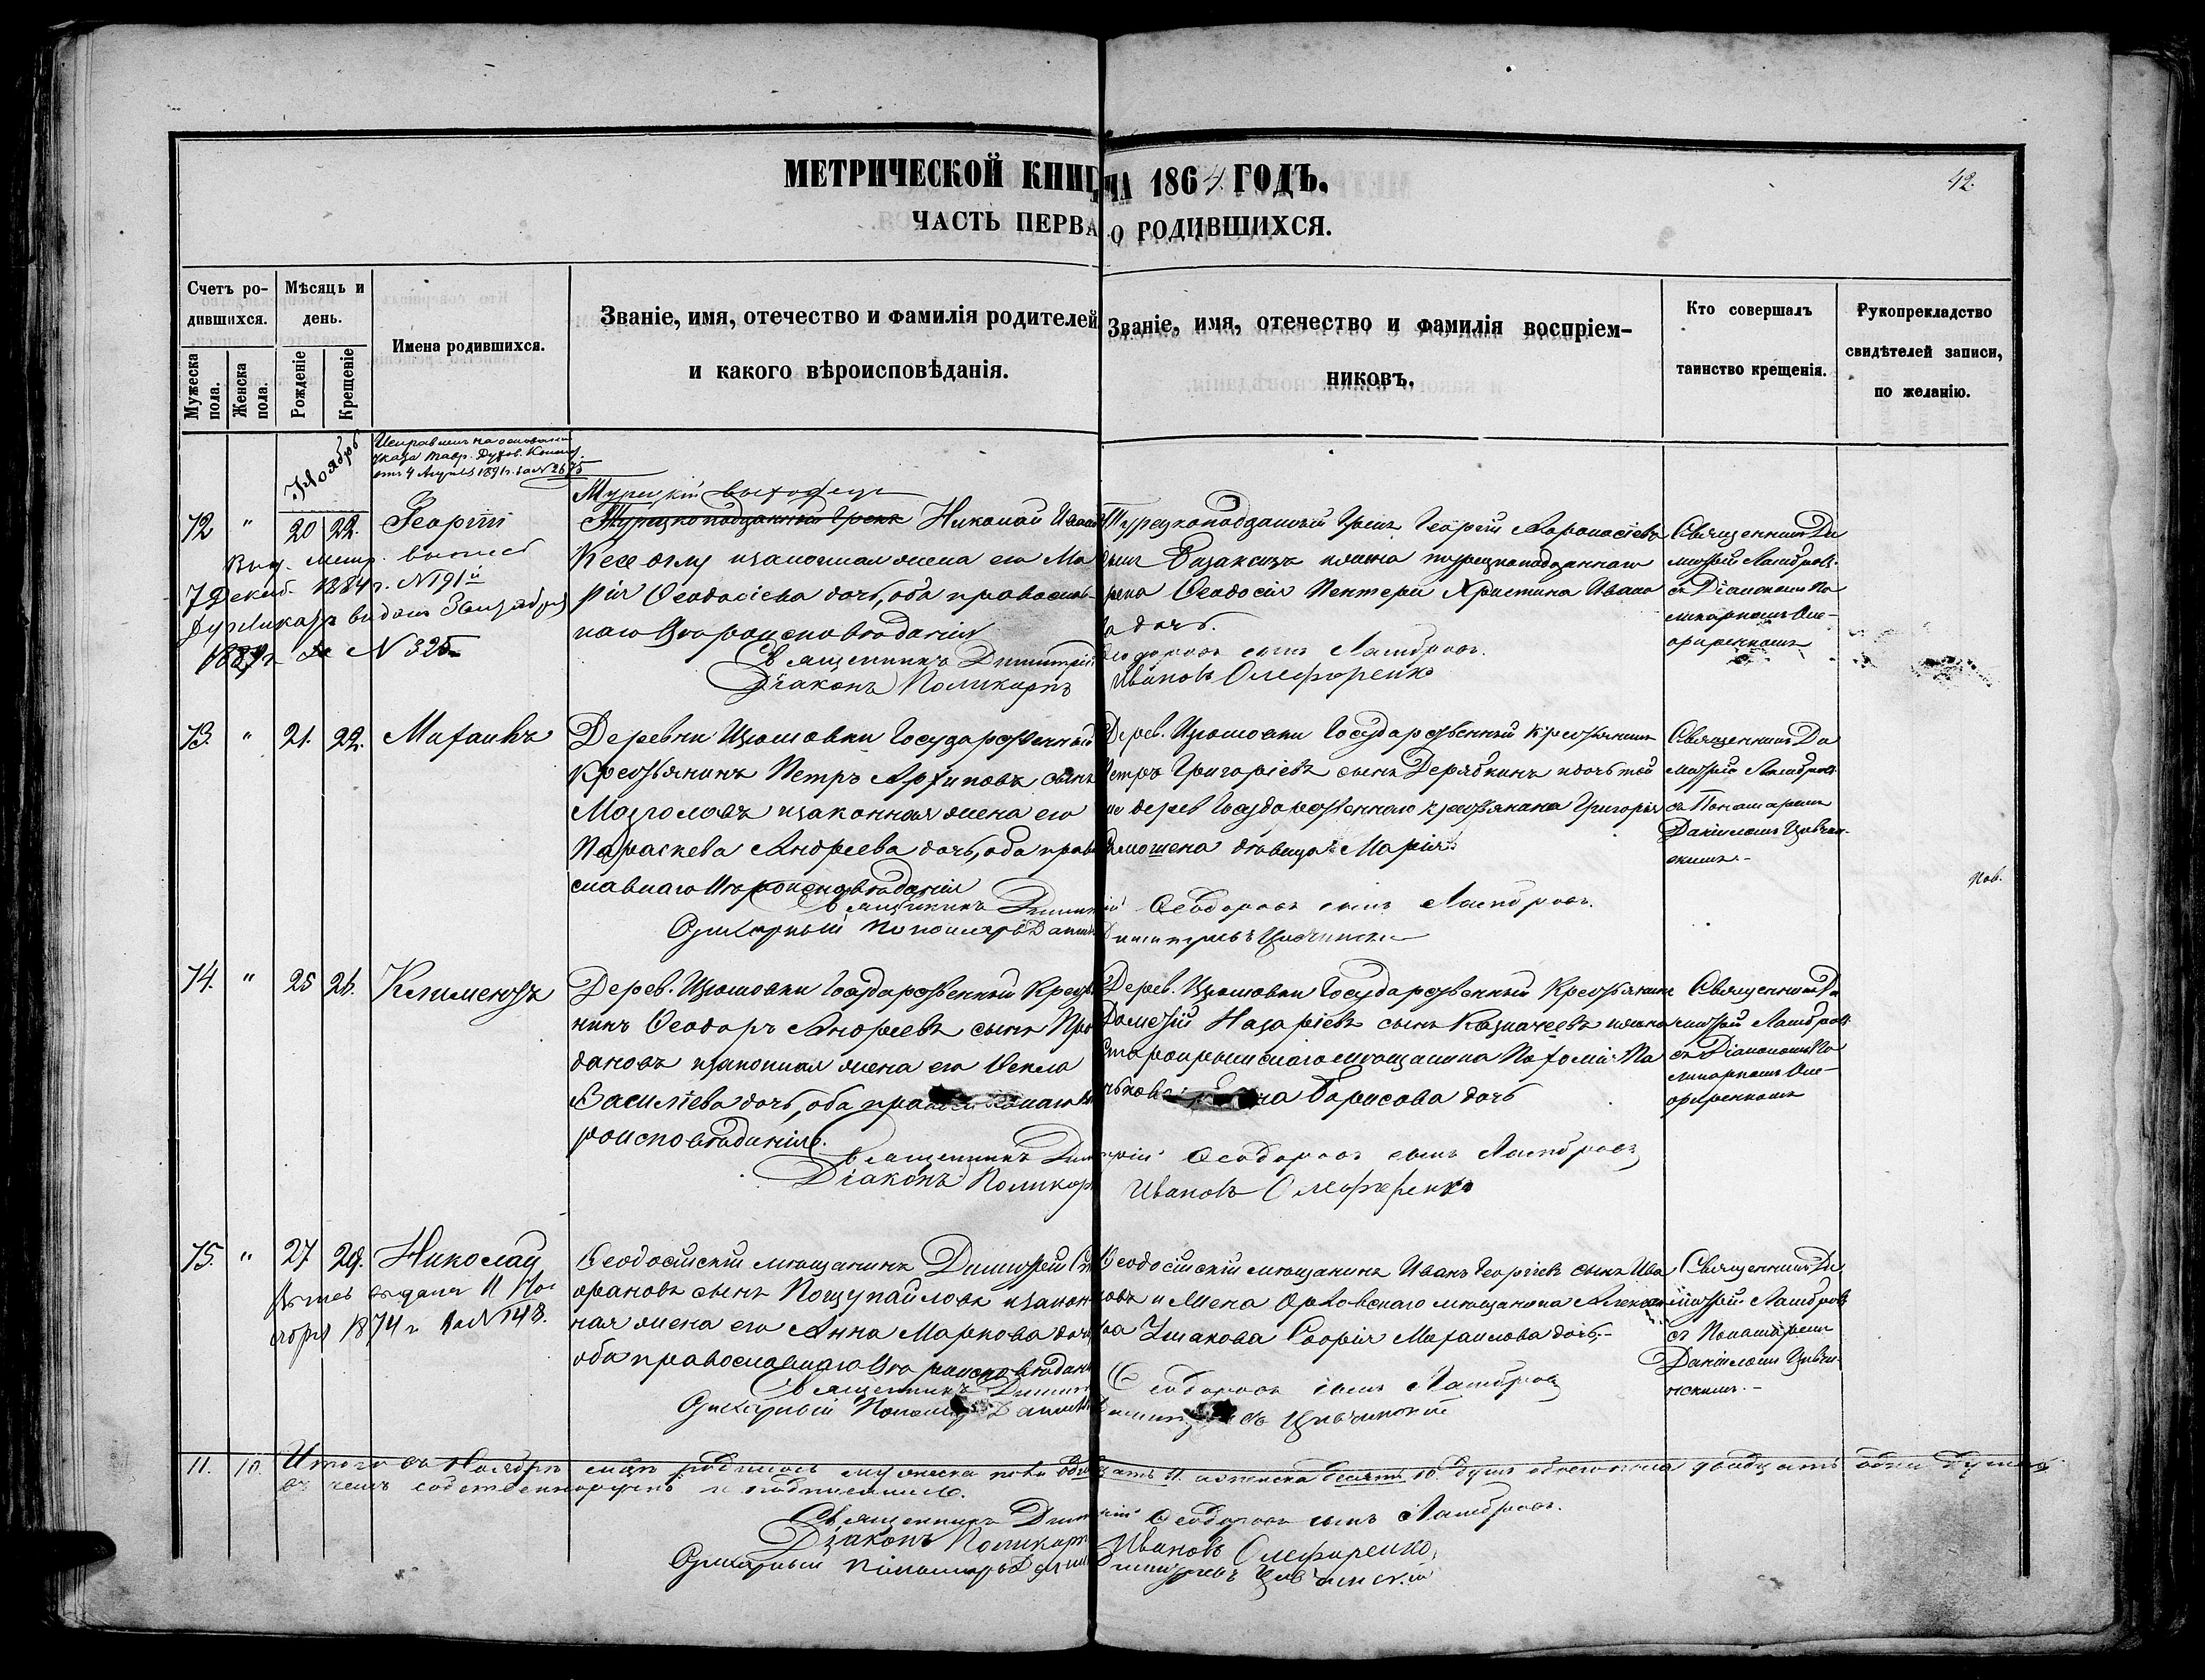 МЕТРИЧЕСКОЙ КНИГ НА 1864. ГОДЪ.
42.
ЧАСТЬ ПЕРВА О РОДИВШИХСЯ.
Счетъ ро-
дившихся.
Мужеска
пола.
Женска
пола.
Мѣсяцъ и
день.
Рожденіе
Крещеніе
Имена родившихся.
Званіе, имя, отечество и фамилія родителей
и какого вѣроисповѣданія.
Званіе, имя, отечество и фамилія воспріем-
никовъ.
Кто совершалъ
таинство крещенія.
Рукоприкладство
свидѣтелей записи,
по желанію.
Ноябрь
Исправлено на основаніи
указа Тавр. Духов. Консист.
отъ 4 1891 г. за № 2675
72 " 20 22. Георгій
Выд. метр. выпись
7 Декаб. 1884 г. № 191й
Дупликатъ выданъ
за № 325
Турецкій выходецъ
Турецкоподданный Грекъ Николай
и законная жена его Ма
рія Ѳеодосіева дочь, оба православ
наго вѣроисповѣданія
Священникъ Димитрій
Діаконъ Поликарпъ
Турецкоподданный Грекъ Георгій
сынъ и жена турецкоподданнаго
Ѳеодосія Пентери Христина Ивано
ва дочь.
Ѳеодоровъ сынъ Ламбровъ.
Ивановъ Олефиренко
Священникъ Ди
митрій Ламбровъ
съ Діакономъ По
ликарпомъ Оле-
фиренкомъ
73. " 21. 22. Михаилъ
Деревни Цюшовки Государственный
Крестьянинъ Петръ Архиповъ сынъ
Мозголовъ и законная жена его
Параскева Андреева дочь, оба право
славнаго вѣроисповѣданія
Священникъ Димит
Пономарь Данил
Дерев. Цюшовки Государственный Крестьянинъ
Петръ Григоріевъ сынъ Дерябкинъ и дочь той
же дерев Государственнаго крестьянина Григорія
девица Марія.
рій Ѳеодоровъ сынъ Ламбровъ.
Димитріевъ
Священникъ Ди
митрій Ламбровъ
съ Пономаремъ
Даніиломъ
скимъ.-
Нов.
74. " 25 26. Климентъ
Дерев. Цюшовки Государственный Кресть
нинъ Ѳеодоръ Андреевъ сынъ Про
дановъ и законная жена его Ѳекла
Василіева дочь, оба православнаго вѣ
роисповѣданія.
Священникъ Дим
Діаконъ Поликар
Дерев. Цюшовки Государственный Крестьянинъ
Назаріевъ сынъ Казначеевъ и жена
Старокрымскаго мѣщанина
Борисова дочь
трій Ѳеодоровъ сынъ Ламбровъ
Ивановъ Олефиренко
Священникъ Ди
митрій Ламбровъ
съ Діакономъ По
ликарпомъ Оле-
фиренкомъ
75. " 27 29. Николай
выдана 11 Но
ября 1874 г за № 148.
Ѳеодосійскій мѣщанинъ Димитрій
сынъ и закон
ная жена его Анна Маркова дочь
оба православнаго вѣроисповѣдан
Священникъ Димит
Пономарь Данил
Ѳеодосійскій мѣщанинъ Иванъ Георгіевъ сынъ Ива
новъ и жена Орховскаго мѣщанина
Ушакова Софія Михаилова дочь.-
Ѳеодоровъ сынъ Ламбровъ
Димитріевъ
Священникъ Ди
митрій Ламбровъ
съ Пономаремъ
Даніиломъ
нскимъ.-
11. 10. Итого въ Ноябрѣ мцѣ родилось мужеска пола одинадцать 11. а женска десять 10. душъ обоего пола двадцать одна душа
въ чемъ собственноручно и подписались.
Священникъ Димит рій Ѳеодоровъ сынъ Ламбровъ.
Діаконъ Поликарп Ивановъ Олефиренко,
Пономарь Данил Димитріевъ